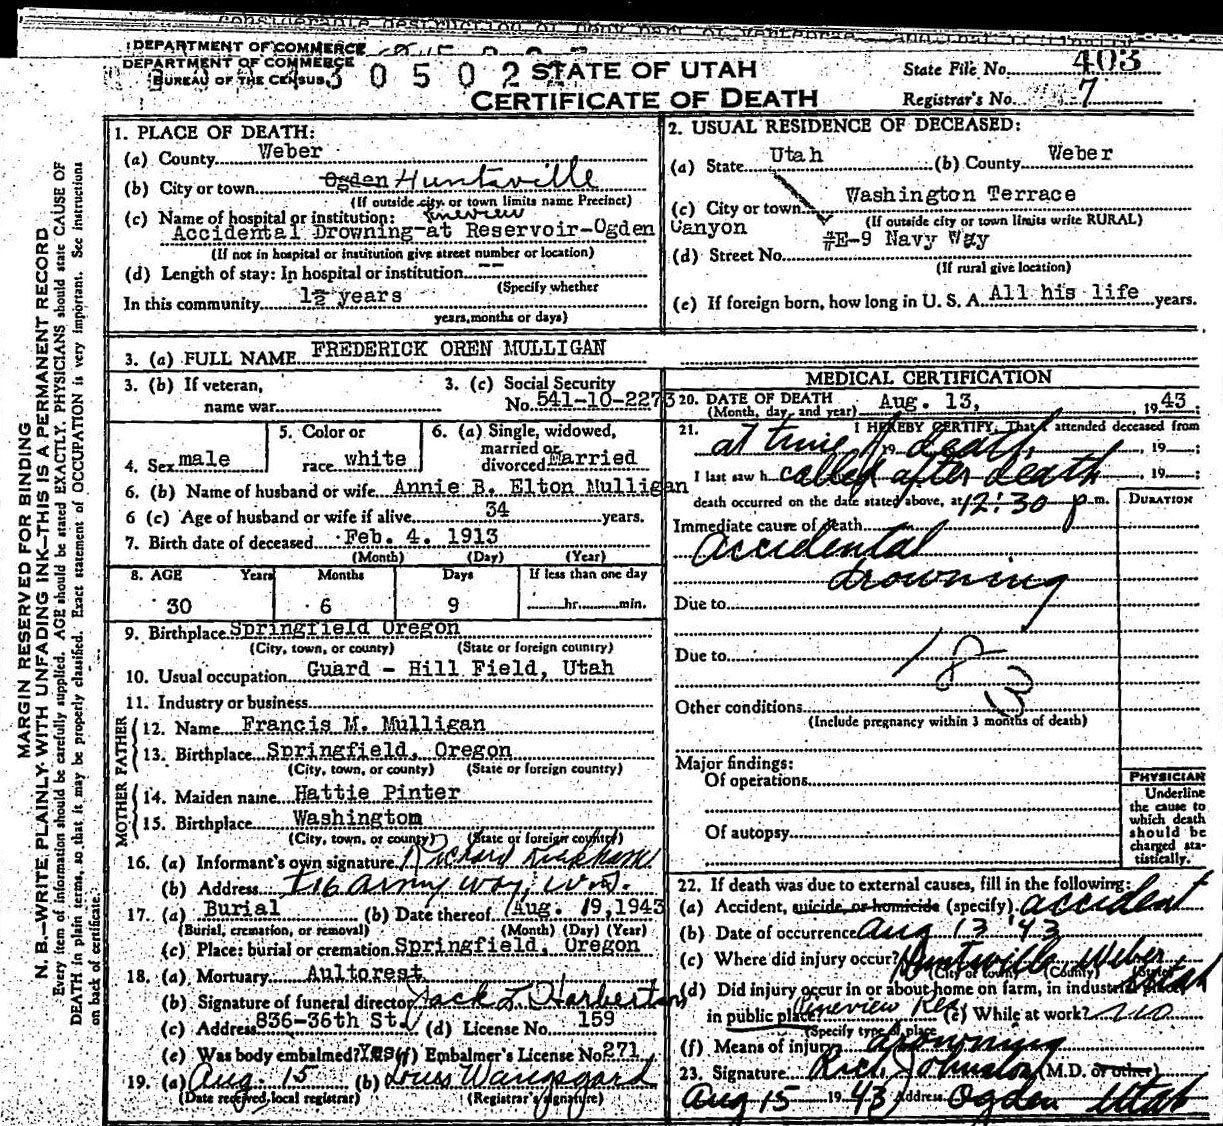 DEPARTMENT OF COMMERCE
DEPARTMENT OF COMMERCE
BUREAU OF THE CENSUS
3 0 5 0 2
STATE OF UTAH
CERTIFICATE OF DEATH
State File No. 403
Registrar's No. 7
MARGIN RESERVED FOR BINDING
N. B.—WRITE PLAINLY WITH UNFADING INK—THIS IS A PERMANENT RECORD
Every item of information should be carefully supplied. AGE should be stated EXACTLY. PHYSICIANS should state CAUSE OF
DEATH in plain terms, so that it may be properly classified. Exact statement of OCCUPATION is very important. See instructions
on back of certificate.
1. PLACE OF DEATH:
(a) County Weber
(b) City or town Ogden Huntsville
(If outside city or town limits name Precinct)
(c) Name of hospital or institution: Pineview
Accidental Drowning-at Reservoir-Ogden Canyon
(If not in hospital or institution give street number or location)
(d) Length of stay: In hospital or institution --
(Specify whether
In this community 1½ years
years, months or days)
2. USUAL RESIDENCE OF DECEASED:
(a) State Utah (b) County Weber
(c) City or town Washington Terrace
(If outside city or town limits write RURAL)
(d) Street No. #E-9 Navy Way
(If rural give location)
(e) If foreign born, how long in U. S. A. All his life years.
3. (a) FULL NAME FREDERICK OREN MULLIGAN
3. (b) If veteran,
name war
3. (c) Social Security
No. 541-10-2273
4. Sex male
5. Color or
race white
6. (a) Single, widowed,
married or
divorced Married
6. (b) Name of husband or wife Annie B. Elton Mulligan
6 (c) Age of husband or wife if alive 34 years.
7. Birth date of deceased Feb. 4. 1913
(Month) (Day) (Year)
8. AGE Years Months Days If less than one day
30 6 9 hr. min.
9. Birthplace Springfield Oregon
(City, town, or county) (State or foreign country)
10. Usual occupation Guard - Hill Field, Utah
11. Industry or business
FATHER
12. Name Francis M. Mulligan
13. Birthplace Springfield, Oregon
(City, town, or county) (State or foreign country)
MOTHER
14. Maiden name Hattie Pinter
15. Birthplace Washington
(City, town, or county) (State or foreign country)
16. (a) Informant's own signature Richard
(b) Address Army Way,
17. (a) Burial (b) Date thereof Aug. 19, 1943
(Burial, cremation, or removal) (Month) (Day) (Year)
(c) Place: burial or cremation Springfield, Oregon
18. (a) Mortuary Aultorest
(b) Signature of funeral director Jack L. Harbertson
(c) Address 836-36th St. (d) License No. 159
(e) Was body embalmed? Yes (f) Embalmer's License No 271
19. (a) Aug. 15 (b) Louis Wangsgard
(Date received, local registrar) (Registrar's signature)
MEDICAL CERTIFICATION
20. DATE OF DEATH
(Month, day, and year) Aug. 13, 1943;
21. I HEREBY CERTIFY, That I attended deceased from
at time of death, 19 , 19 ;
I last saw h called after death , 19 ;
death occurred on the date stated above, at 12:30 p m.
DURATION
Immediate cause of death
accidental
drowning
Due to
Due to
183
Other conditions
(Include pregnancy within 3 months of death)
Major findings:
Of operations
Of autopsy
PHYSICIAN
Underline
the cause to
which death
should be
charged sta-
tistically.
22. If death was due to external causes, fill in the following:
(a) Accident, suicide, or homicide (specify) accident
(b) Date of occurrence Aug 13 '43
(c) Where did injury occur? Huntsville Weber Utah
(City or town) (County) (State)
(d) Did injury occur in or about home on farm, in industrial place
in public place? Pineview Res (e) While at work? no
(Specify type of place
(f) Means of injury drowning
23. Signature Rich Johnston (M.D. or other)
Aug 15 1943 Address Ogden Utah